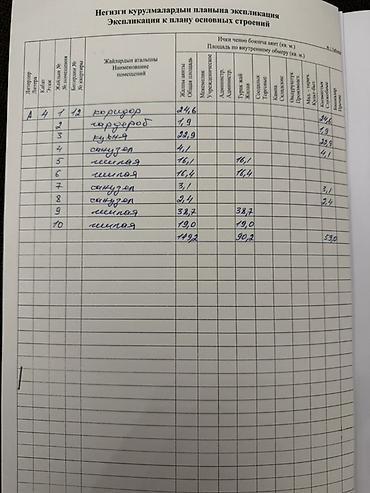 Негизги курулмалардын планына экспликация
Экспликация к плану основных строений
Ички ченөө боюнча аянт (кв. м.)
Площадь по внутреннему обмеру (кв. м.)
Литерлер Литера
Кабат Этаж
№ помещения
№ квартиры
Жайлардын аталышы Наименование помещений
Жалпы аянты Общая площадь
Мекемелик Учрежденческие
Админстр. Админстр.
Турак жай Жилая
Соодалык Торговые
Кампа Складские
Өндүрүштүк Производст.
А 4 1 12 коридор 24,6 24,6
2 гардероб 1,9 1,9
3 кухня 22,9 22,9
4 санузел 4,1 4,1
5 жилая 16,1 16,1
6 жилая 16,4 16,4
7 санузел 3,1 3,1
8 санузел 2,4 2,4
9 жилая 38,7 38,7
10 жилая 19,0 19,0
149,2 90,2 59,0